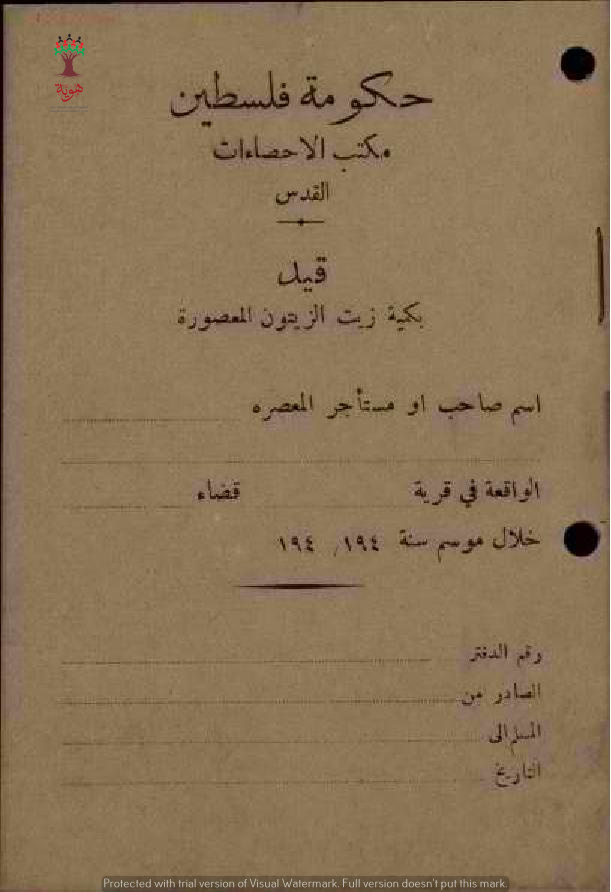 هوية
حكومة فلسطين
مكتب الاحصاءات
القدس
قيد
بكمية زيت الزيتون المعصورة
اسم صاحب او مستأجر المعصره
الواقعة في قرية قضاء
خلال موسم سنة ١٩٤ / ١٩٤
رقم الدفتر
الصادر من
المسلم الى
التاريخ
Protected with trial version of Visual Watermark. Full version doesn't put this mark.